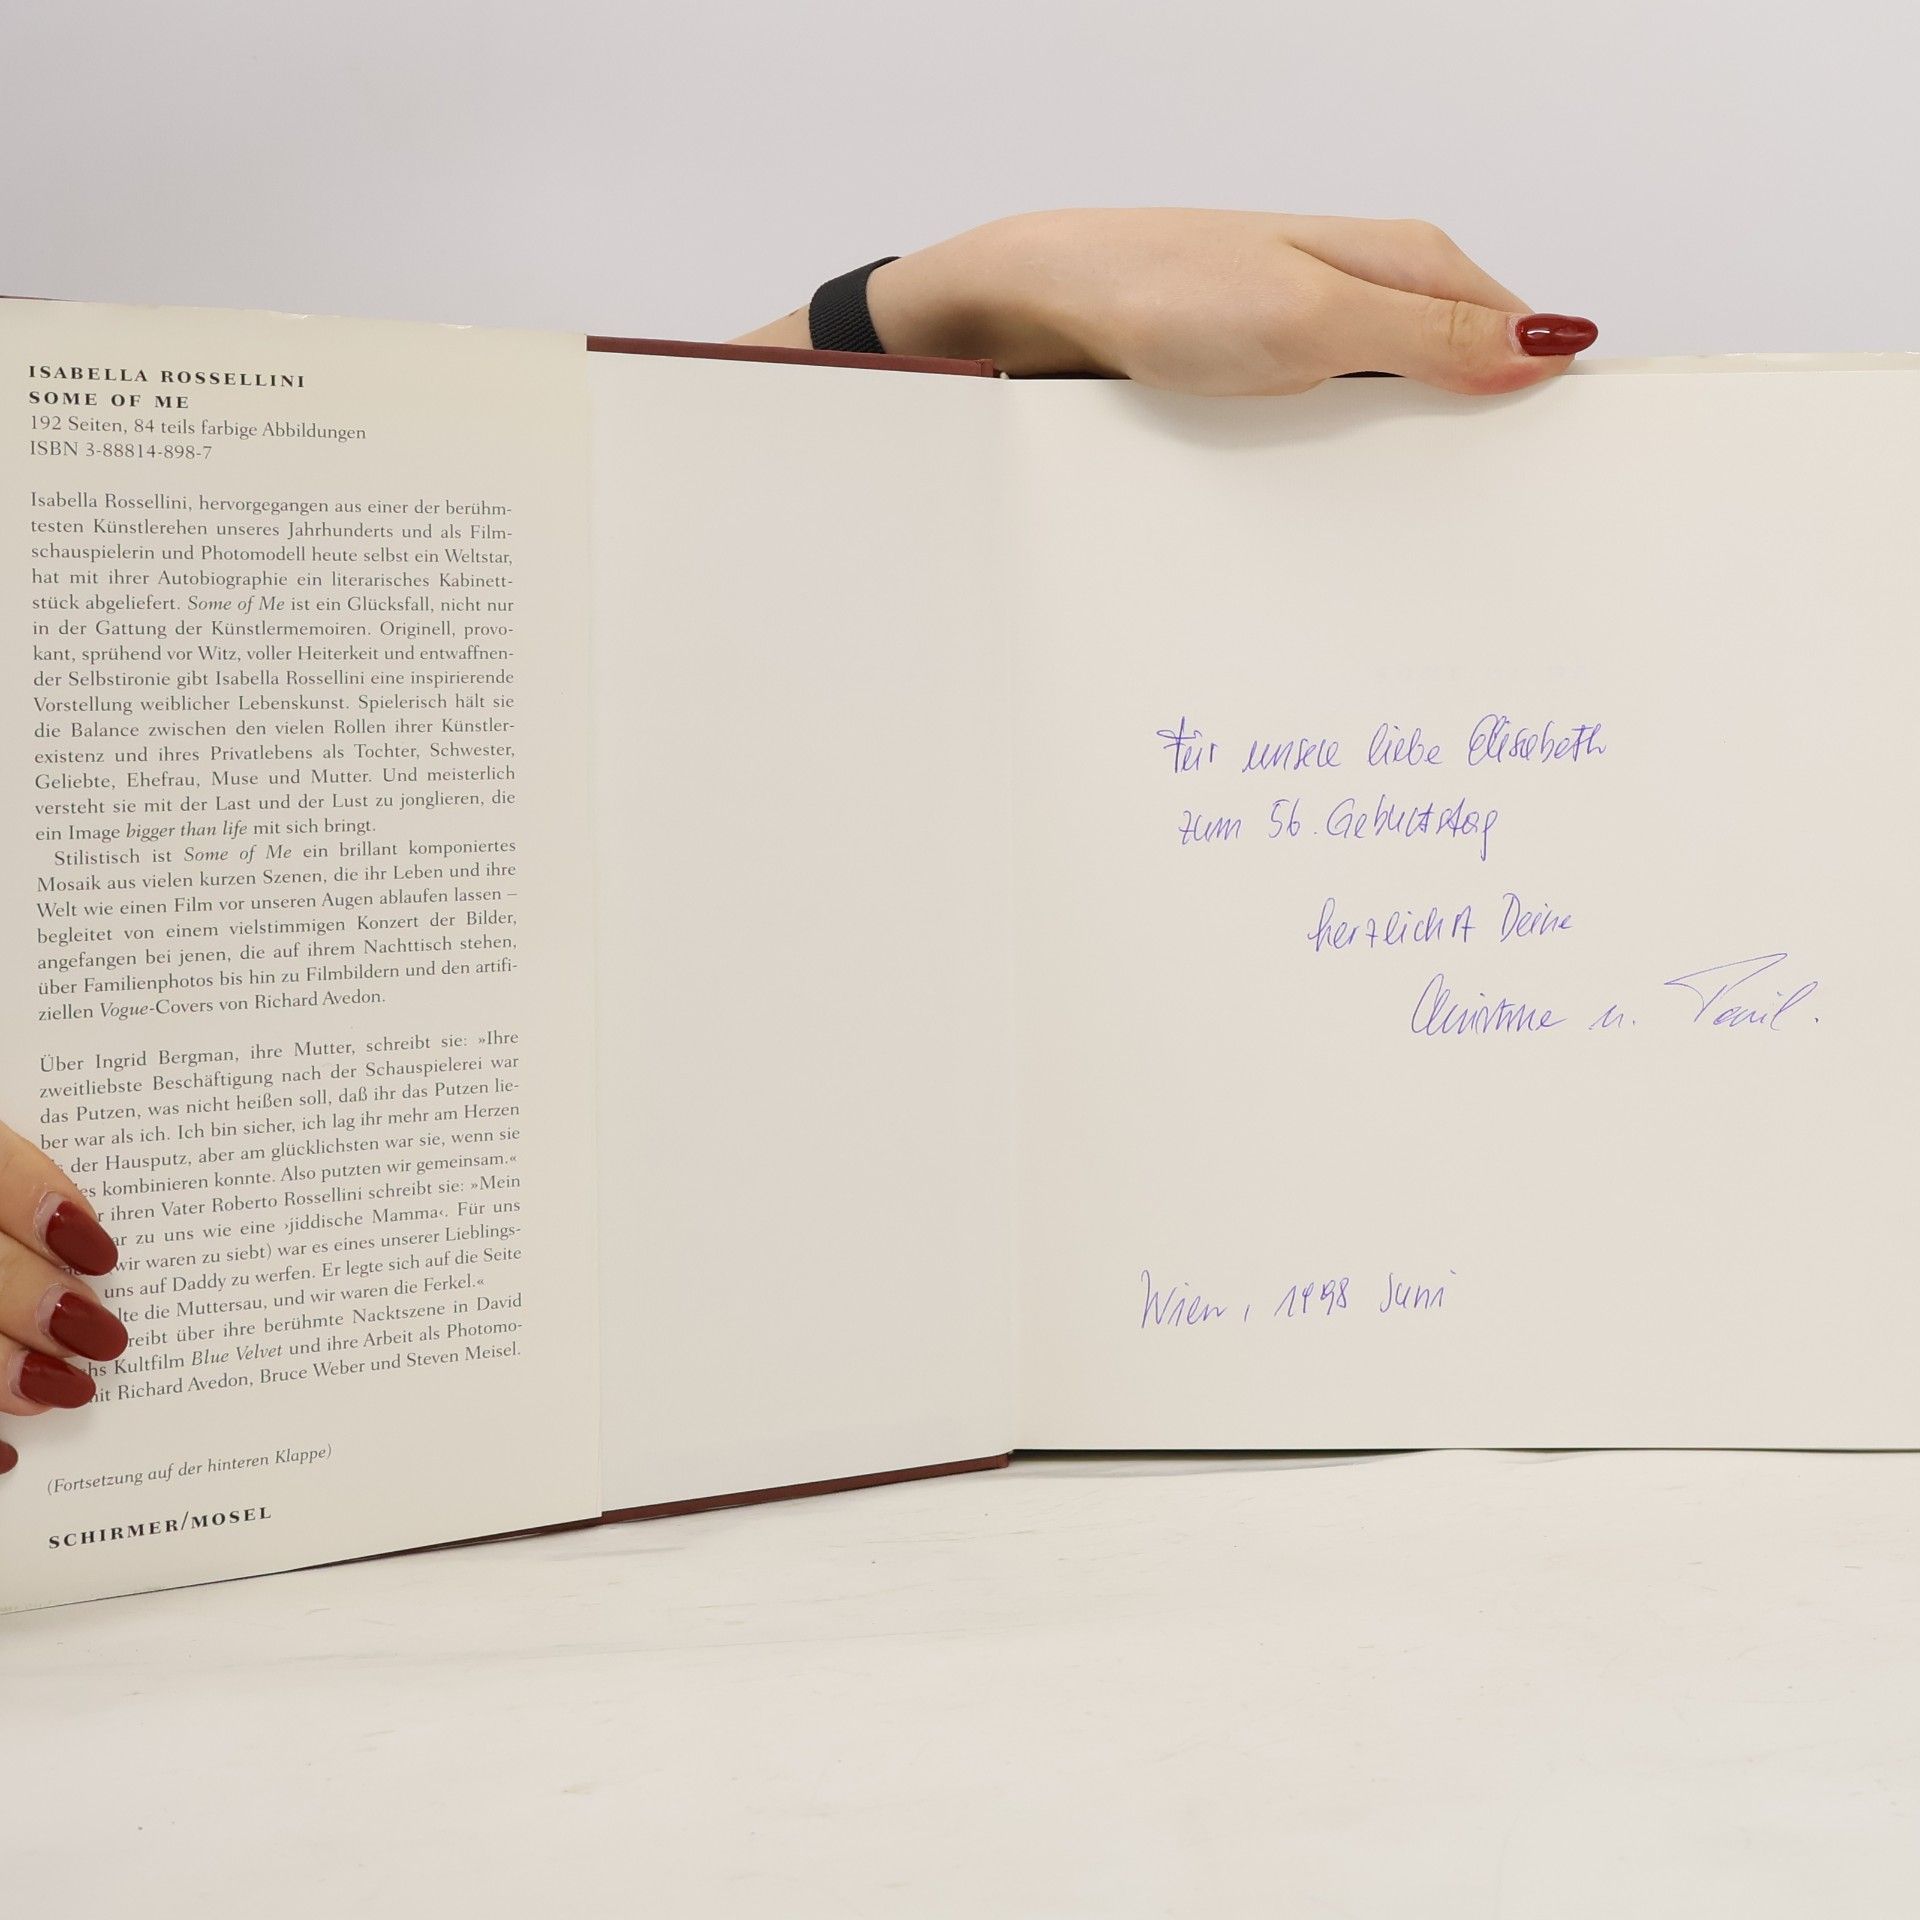 ISABELLA ROSSELLINI
SOME OF ME
192 Seiten, 84 teils farbige Abbildungen
ISBN 3-88814-898-7
Isabella Rossellini, hervorgegangen aus einer der berühm-
testen Künstlerehen unseres Jahrhunderts und als Film-
schauspielerin und Photomodell heute selbst ein Weltstar,
hat mit ihrer Autobiographie ein literarisches Kabinett-
stück abgeliefert. Some of Me ist ein Glücksfall, nicht nur
in der Gattung der Künstlermemoiren. Originell, provo-
kant, sprühend vor Witz, voller Heiterkeit und entwaffnen-
der Selbstironie gibt Isabella Rossellini eine inspirierende
Vorstellung weiblicher Lebenskunst. Spielerisch hält sie
die Balance zwischen den vielen Rollen ihrer Künstler-
existenz und ihres Privatlebens als Tochter, Schwester,
Geliebte, Ehefrau, Muse und Mutter. Und meisterlich
versteht sie mit der Last und der Lust zu jonglieren, die
ein Image bigger than life mit sich bringt.
Stilistisch ist Some of Me ein brillant komponiertes
Mosaik aus vielen kurzen Szenen, die ihr Leben und ihre
Welt wie einen Film vor unseren Augen ablaufen lassen –
begleitet von einem vielstimmigen Konzert der Bilder,
angefangen bei jenen, die auf ihrem Nachttisch stehen,
über Familienphotos bis hin zu Filmbildern und den artifi-
ziellen Vogue-Covers von Richard Avedon.
Über Ingrid Bergman, ihre Mutter, schreibt sie: »Ihre
zweitliebste Beschäftigung nach der Schauspielerei war
das Putzen, was nicht heißen soll, daß ihr das Putzen lie-
ber war als ich. Ich bin sicher, ich lag ihr mehr am Herzen
der Hausputz, aber am glücklichsten war sie, wenn sie
kombinieren konnte. Also putzten wir gemeinsam.«
ihren Vater Roberto Rossellini schreibt sie: »Mein
zu uns wie eine ›jiddische Mamma‹. Für uns
wir waren zu siebt) war es eines unserer Lieblings-
uns auf Daddy zu werfen. Er legte sich auf die Seite
die Muttersau, und wir waren die Ferkel.«
über ihre berühmte Nacktszene in David
Kultfilm Blue Velvet und ihre Arbeit als Photomo-
Richard Avedon, Bruce Weber und Steven Meisel.
(Fortsetzung auf der hinteren Klappe)
SCHIRMER/MOSEL
Für unsere liebe Elisabeth
zum 56. Geburtstag
herzlichst Deine
Christine u. Paul.
Wien, 1998 Juni